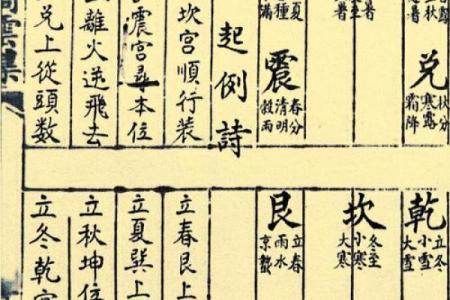 兌
秋分
寒露
霜降
震
春分
清明
穀雨
起例詩
坎宮順行装
震宮尋本位
離火逆飛去
兌上從頭數
乾
立冬
小雪
大雪
坎
冬至
小寒
大寒
艮
立春
雨水
京蟄
立春艮上
立夏巽上
立秋坤位
立冬乾宮